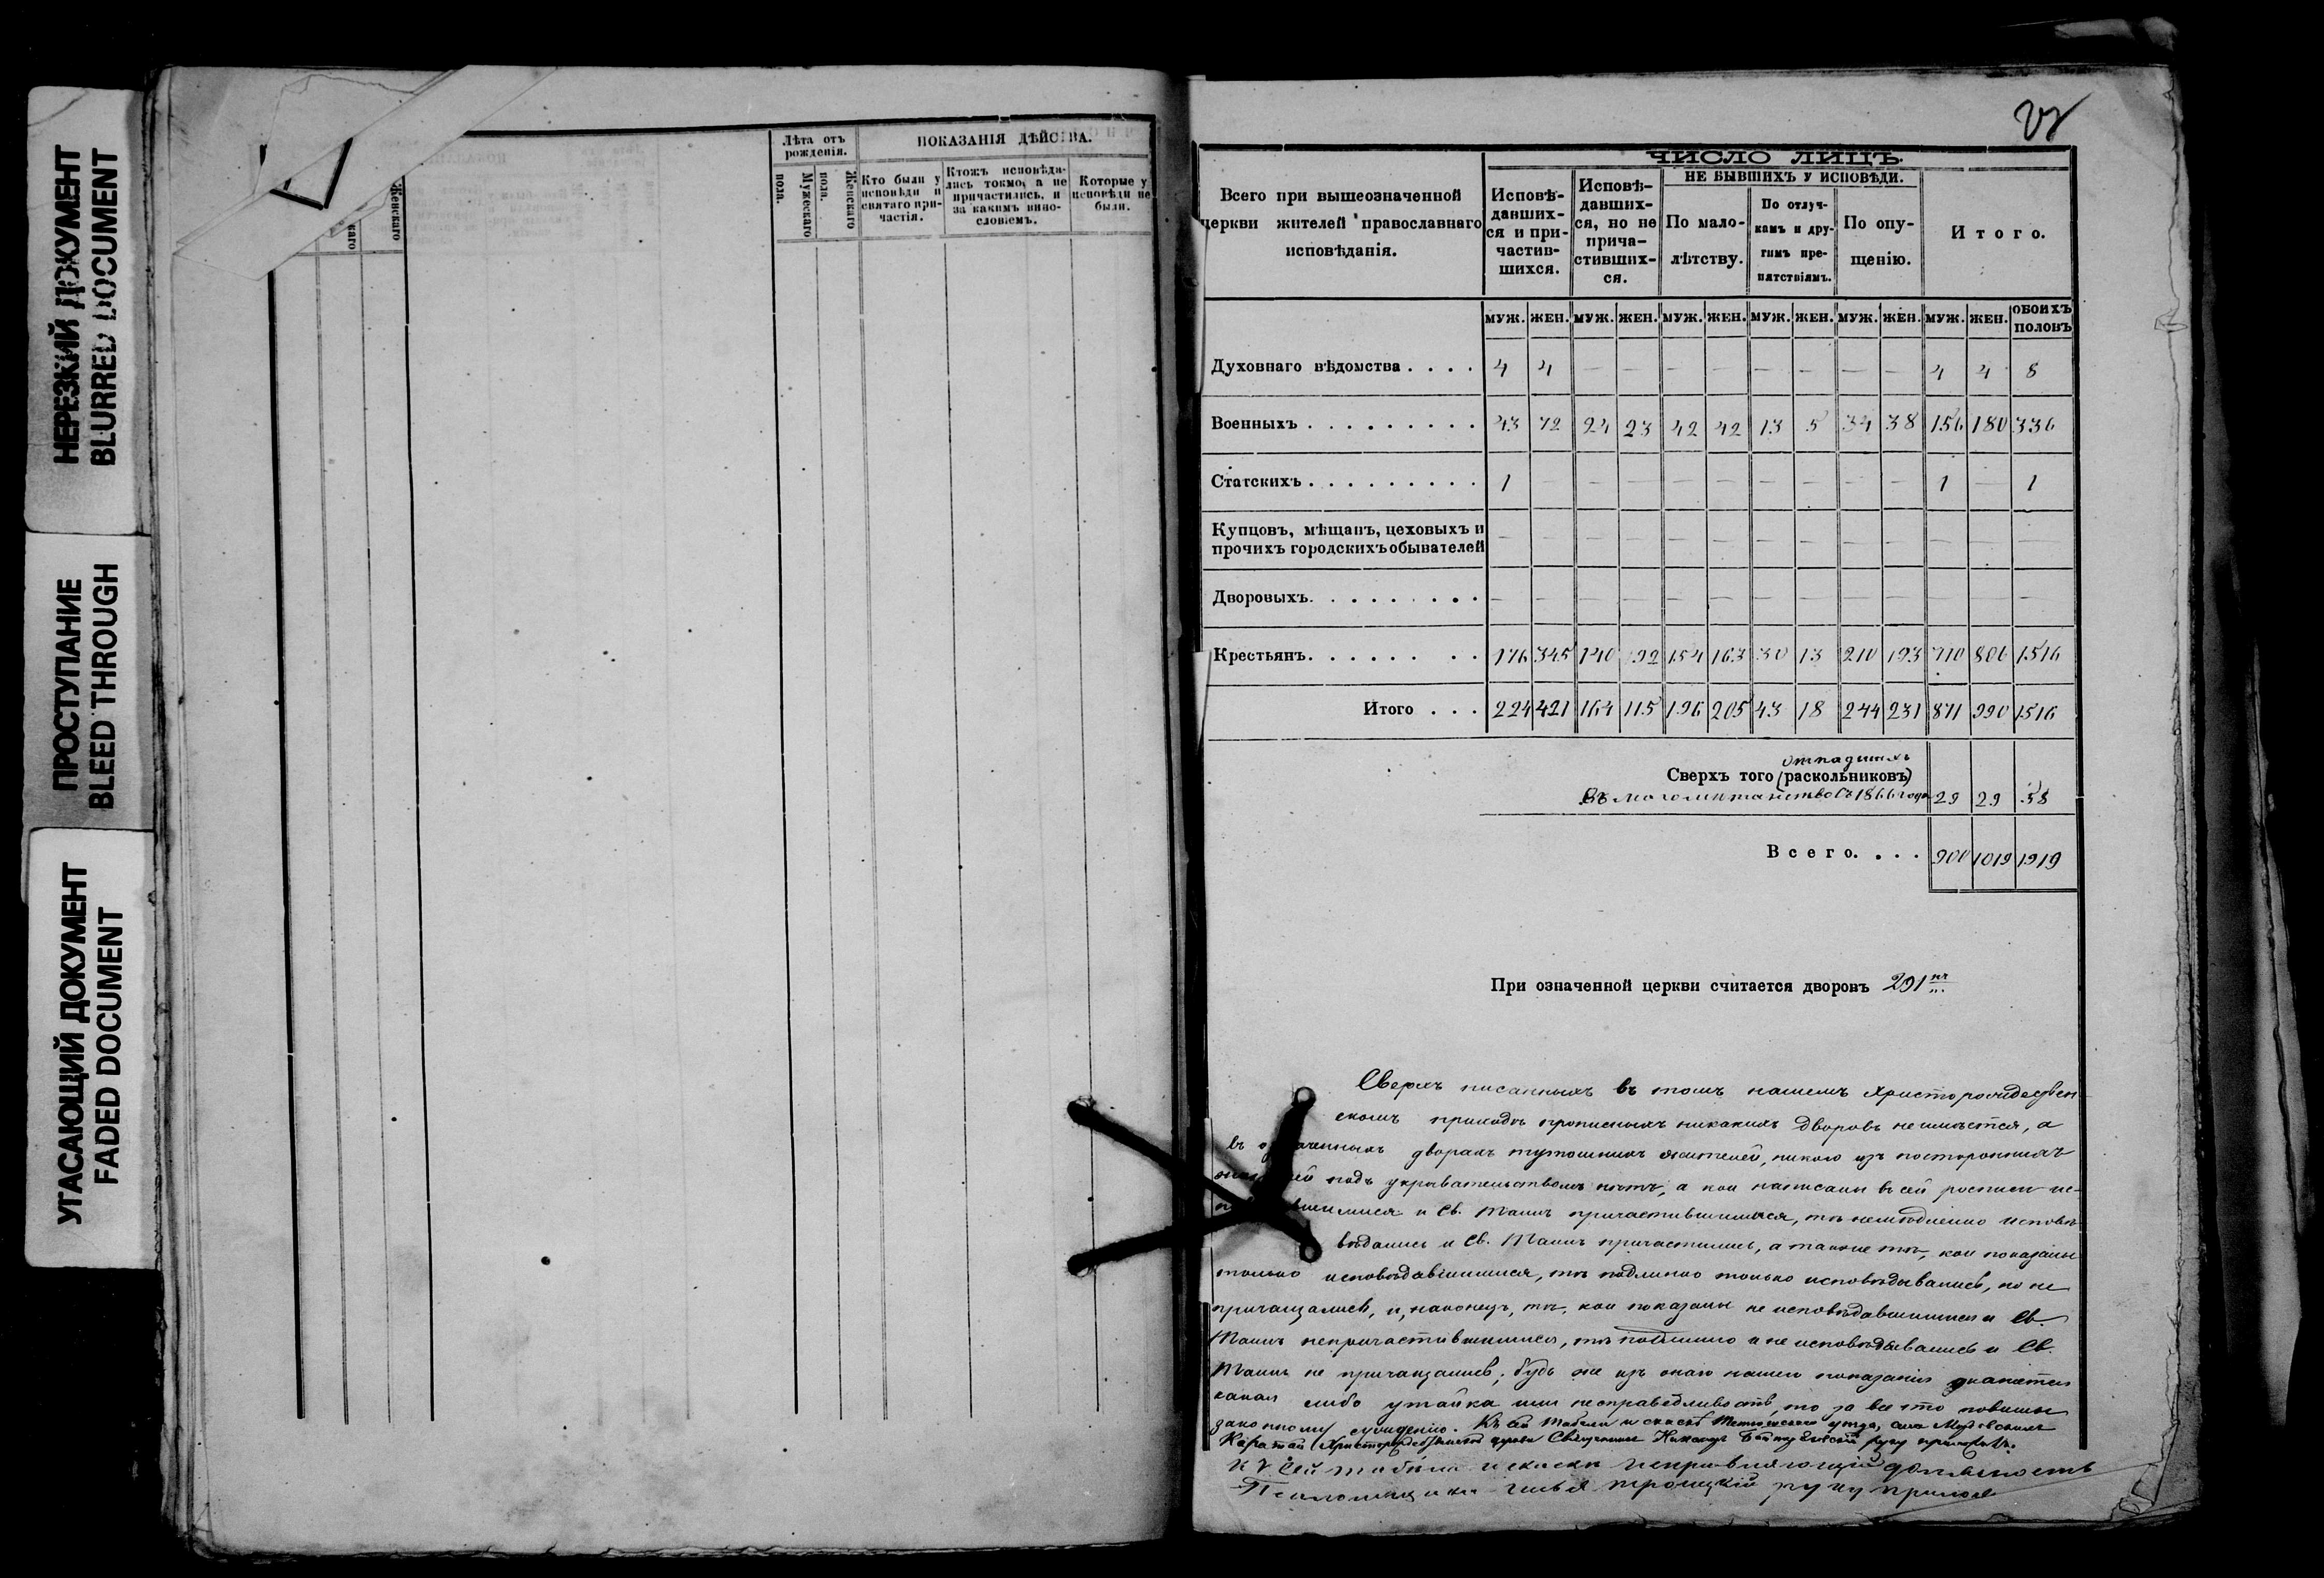 НЕРЕЗКИЙ ДОКУМЕНТ
BLURRED DOCUMENT
ПРОСТУПАНИЕ
BLEED THROUGH
УГАСАЮЩИЙ ДОКУМЕНТ
FADED DOCUMENT
каго
Женскаго
Лѣта отъ рожденія.
Мужескаго пола.
Женскаго пола.
ПОКАЗАНІЯ ДѢЙСТВА.
Кто были у исповѣди и святаго причастія.
Ктожъ исповѣдались токмо, а не причастились, и за какимъ винословіемъ.
Которые у исповѣди не были.
Всего при вышеозначенной
церкви жителей православнаго
исповѣданія.
ЧИСЛО ЛИЦЪ.
Исповѣ-
давших-
ся и при-
частив-
шихся.
Исповѣ-
давших-
ся, но не
прича-
стивших-
ся.
НЕ БЫВШИХЪ У ИСПОВѢДИ.
По мало-
лѣтству.
По отлуч-
камъ и дру-
гимъ пре-
пятствіямъ.
По опу-
щенію.
Итого.
МУЖ. ЖЕН. МУЖ. ЖЕН. МУЖ. ЖЕН. МУЖ. ЖЕН. МУЖ. ЖЕН. МУЖ. ЖЕН. ОБОИХЪ ПОЛОВЪ
Духовнаго вѣдомства . . . . 4 4 — — — — — — — — 4 4 8
Военныхъ . . . . . . . . . 43 72 24 23 42 42 13 5 34 38 156 180 336
Статскихъ . . . . . . . . . 1 — — — — — — — — — 1 — 1
Купцовъ, мѣщанъ, цеховыхъ и
прочихъ городскихъ обывателей — — — — — — — — — — — — —
Дворовыхъ. . . . . . . . . — — — — — — — — — — — — —
Крестьянъ. . . . . . . . 176 345 140 92 154 163 30 13 210 193 710 806 1516
Итого . . . 224 421 164 115 196 205 43 18 244 231 871 990 1516
отпадшихъ
Сверхъ того (раскольниковъ)
въ магометанство съ 1866 года 29 29 58
Всего. . . . 900 1019 1919
При означенной церкви считается дворовъ 291
Сверхъ писанныхъ въ томъ нашемъ Христорождествен-
скомъ приходѣ прописныхъ никакихъ дворовъ не имѣется, а
въ дворахъ тутошнихъ жителей, никого изъ постороннихъ
подъ укрывательствомъ нѣтъ, а кои написаны въ сей росписи ис-
и Св. Таинъ причастившимися, тѣ исповѣ-
вѣдались и Св. Таинъ причастились, а также тѣ, кои показаны
только исповѣдавшимися, тѣ подлинно только исповѣдывались, но не
причащались, и, наконецъ, тѣ, кои показаны не исповѣдавшимися и Св.
Таинъ непричастившимися, тѣ подлинно и не исповѣдывались и Св.
Таинъ не причащались; будь же изъ онаго нашего показанія окажется
какая либо утайка или несправедливость, то за все это повинны
законному сужденію. Къ сей табели и сказкѣ Тетюшскаго уѣзда, села Мордовскихъ
Каратай Христорождественской церкви Священникъ руку приложилъ.
Къ сей табели и сказки исправляющій должность
Псаломщика Илья Троицкій руку приложи